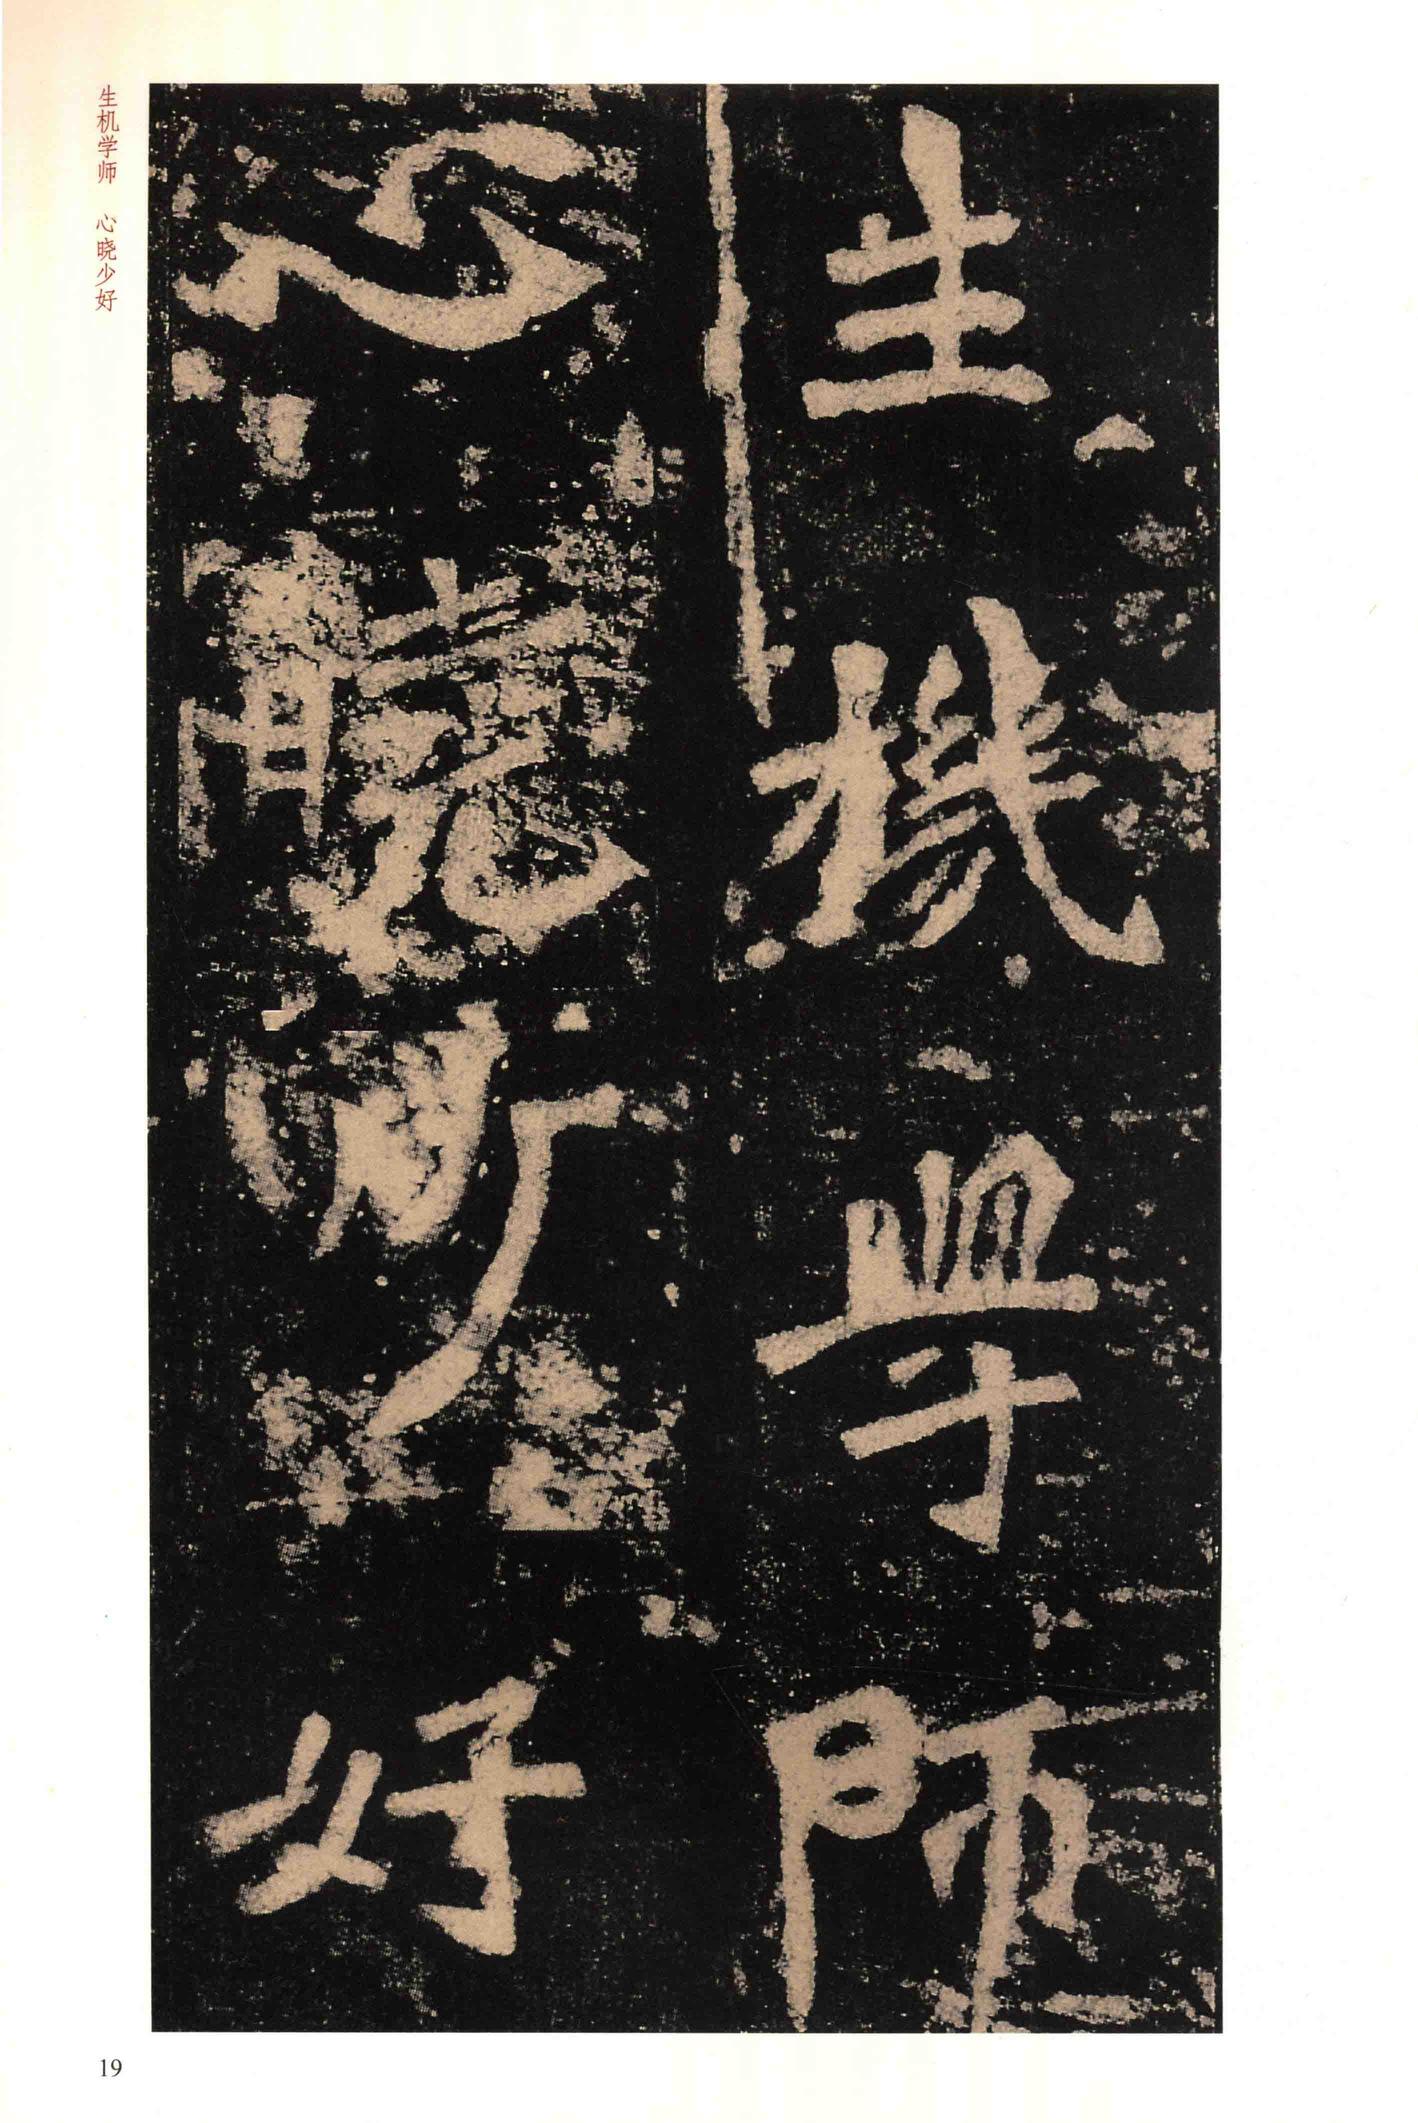 生機學師
心曉少好
生机学师 心晓少好
19